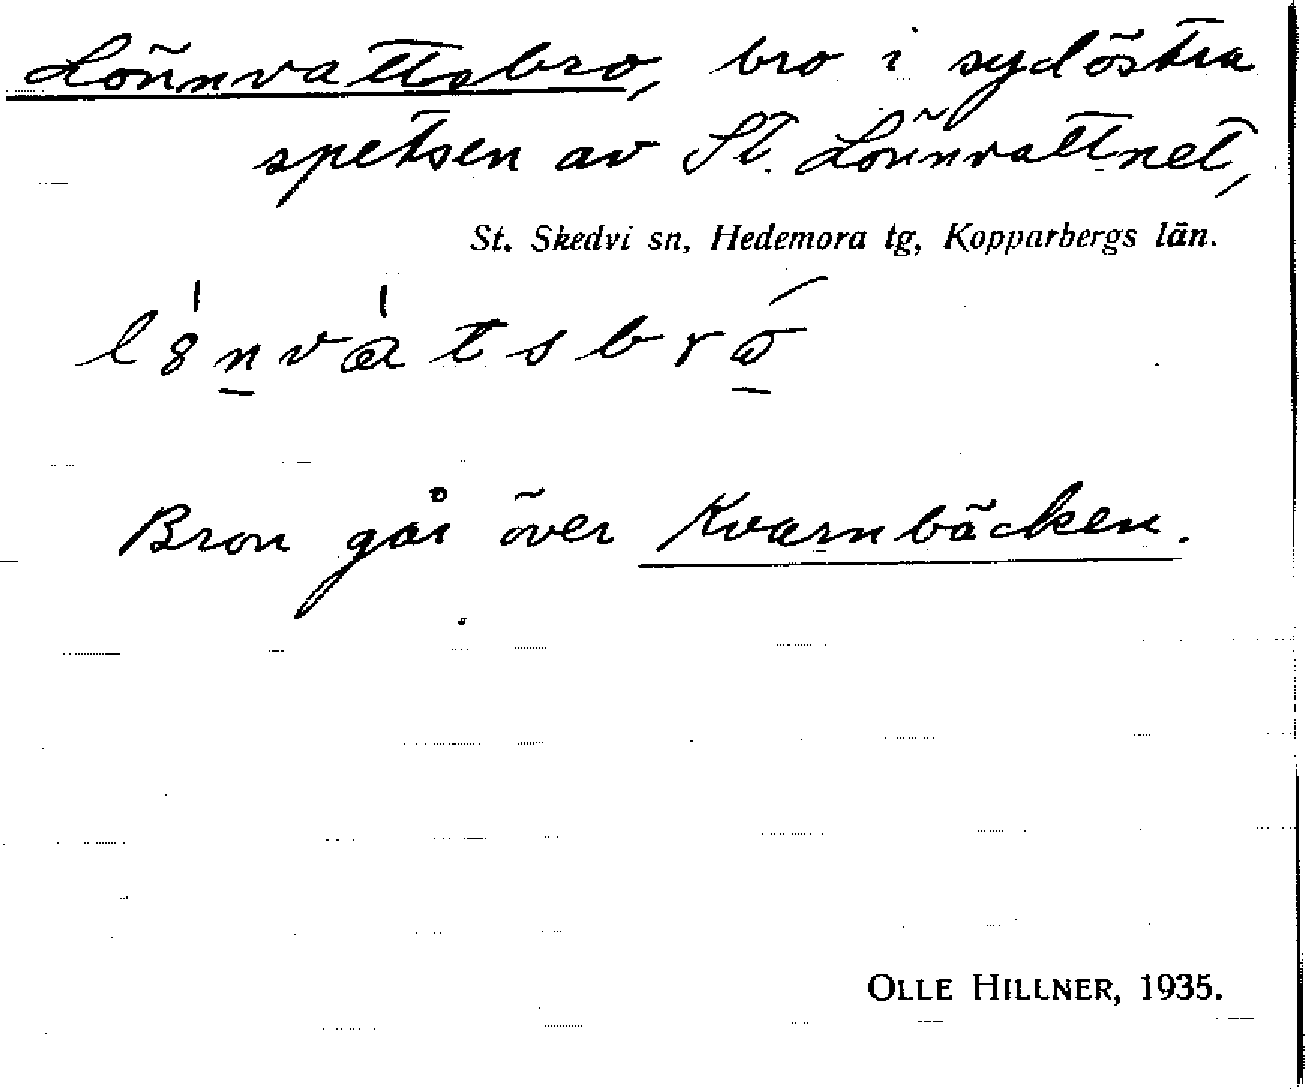 Lönnvattsbro, bro i sydöstra
spetsen av St. Lönnvattnet,
St. Skedvi sn, Hedemora tg, Kopparbergs län.
Bron går över Kvarnbäcken.
OLLE HILLNER, 1935.